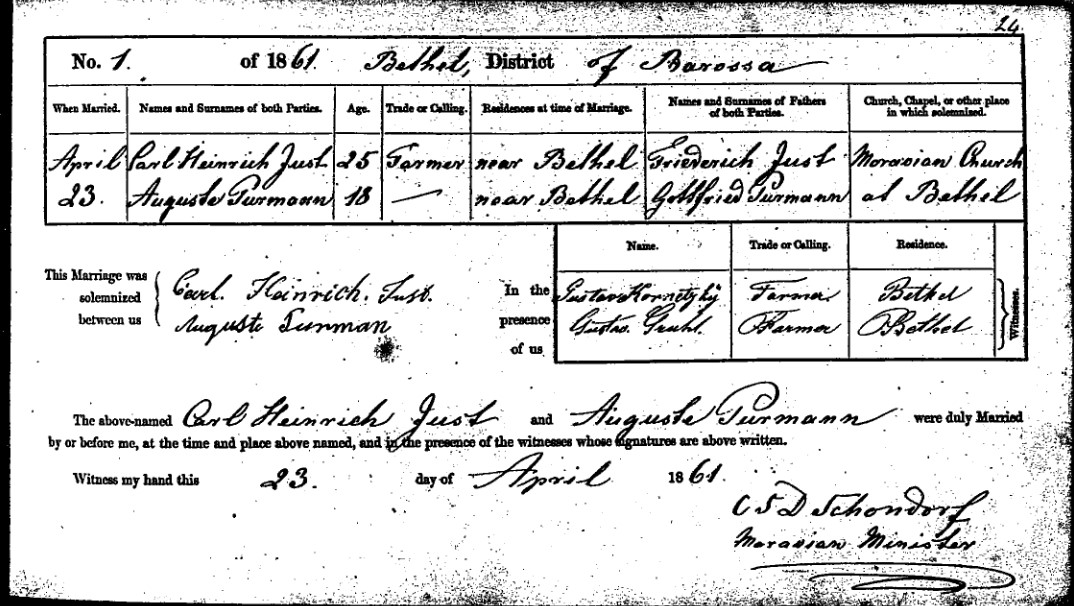 24
No. 1. of 1861. Bethel, District of Barossa
When Married. Names and Surnames of both Parties. Age. Trade or Calling. Residences at time of Marriage. Names and Surnames of Fathers of both Parties. Church, Chapel, or other place in which solemnized.
April Carl Heinrich Just 25 Farmer near Bethel Friederich Just Moravian Church
23. Auguste Purmann 18 — near Bethel Gottfried Purmann at Bethel
Name. Trade or Calling. Residence.
This Marriage was solemnized between us
Carl. Heinrich. Just.
Auguste Purman
In the presence of us
Gustav Kornetzky Farmer Bethel
Gustav. Gruhl. Farmer Bethel
Witnesses.
The above-named Carl Heinrich Just and Auguste Purmann were duly Married
by or before me, at the time and place above named, and in the presence of the witnesses whose signatures are above written.
Witness my hand this 23. day of April 1861.
C S D Schondorf
Moravian Minister